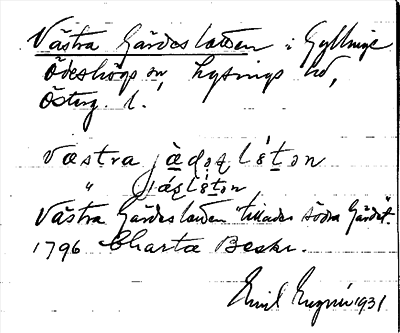 Västra Gärdeslätten i Gyllinge
Ödeshögs sn, Lysings hd,
Österg. l.
västra jä̀dəs lɛ́tən
" jǽslɛ́tən
Västra Gärdeslätten kallades Södra Gärdet
1796 Charta Beskr.
Emil 1931